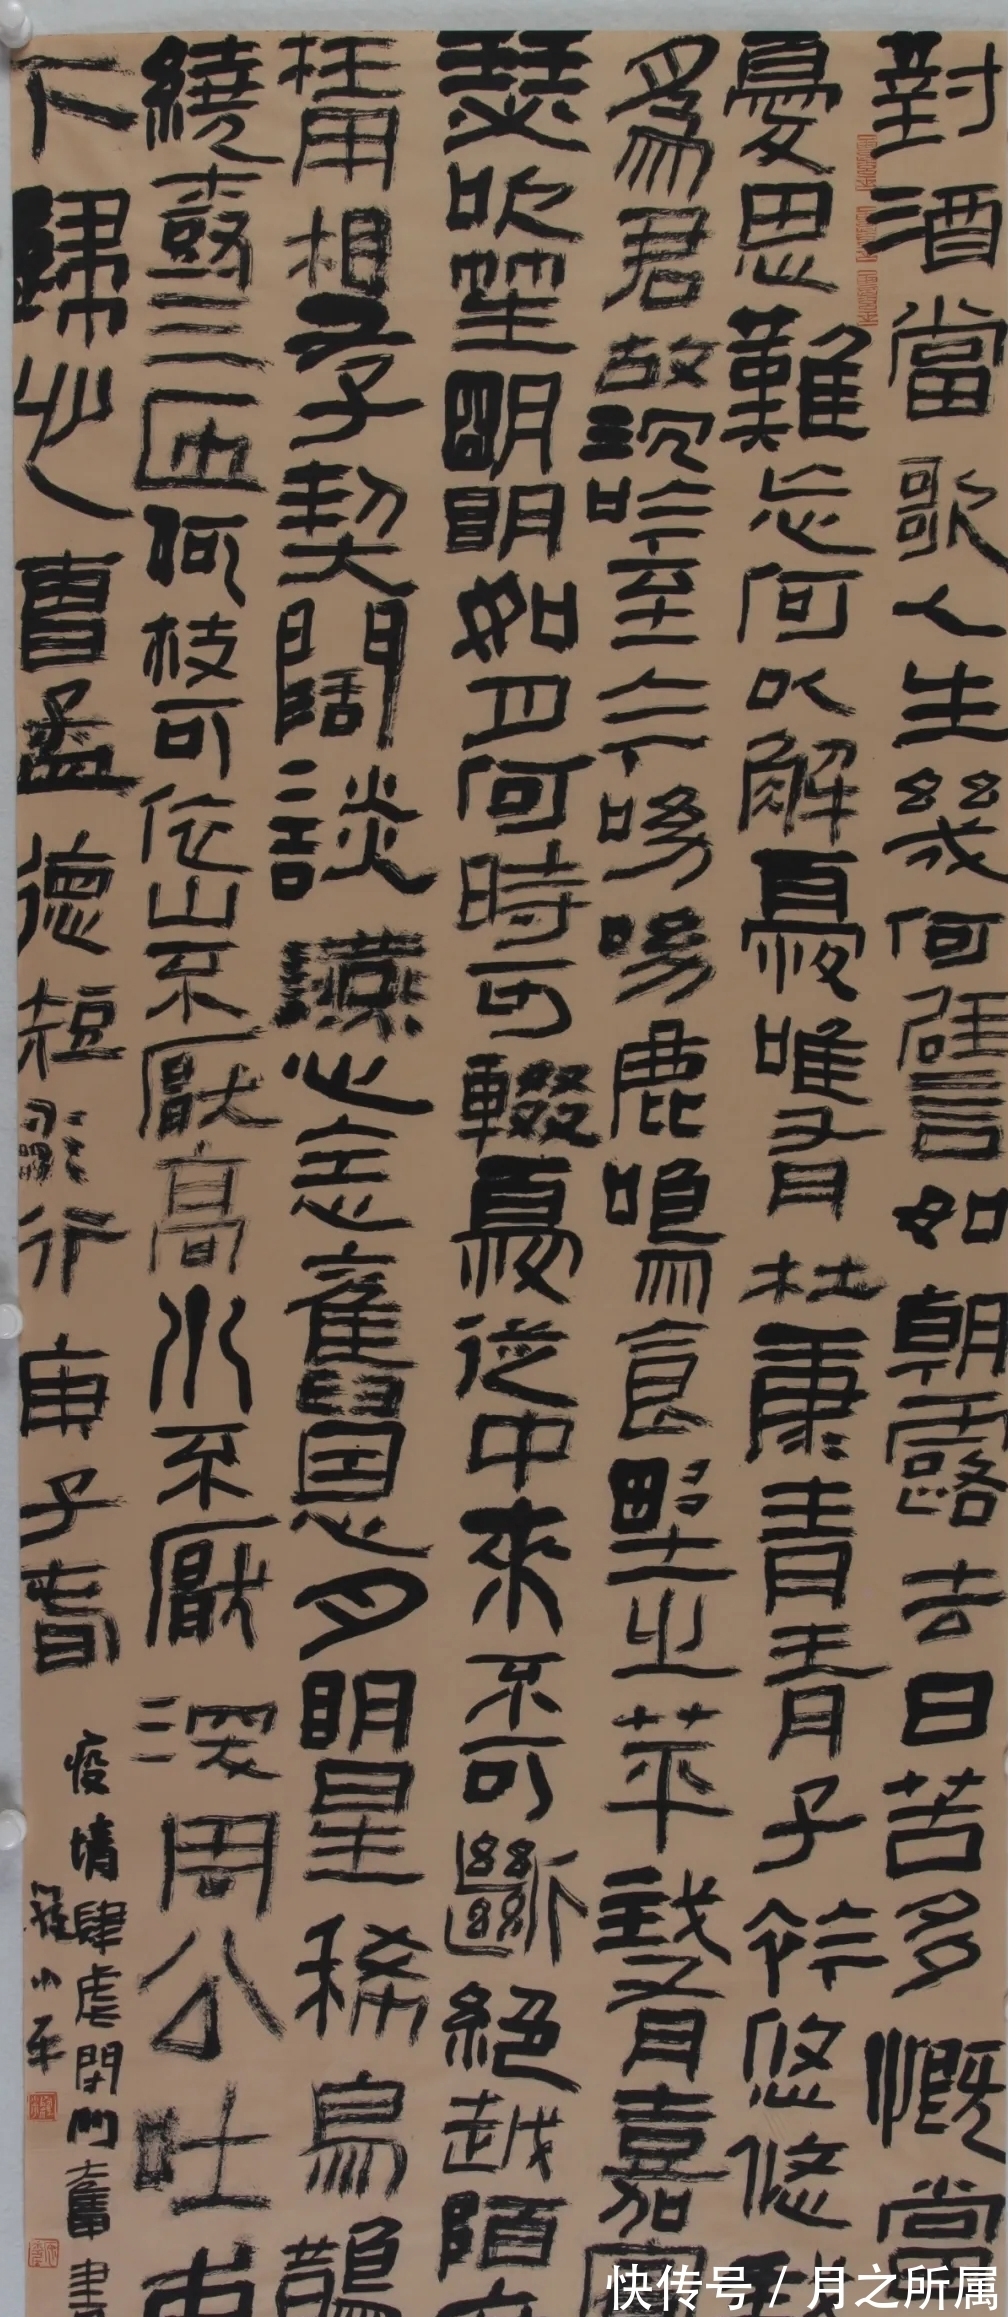 對酒當歌人生幾何譬如朝露去日苦多慨當
憂思難忘何以解憂唯有杜康青青子衿悠悠
為君故沉吟至今呦呦鹿鳴食野之苹我有嘉賓
瑟吹笙明明如月何時可輟憂從中來不可斷絕越陌
枉用相存契闊談讌心念舊恩月明星稀烏鵲
繞樹三匝何枝可依山不厭高水不厭深周公吐
下歸心曹孟德短歌行庚子春
疫情肆虐閉門奮書
小平
快传号 / 月之所属